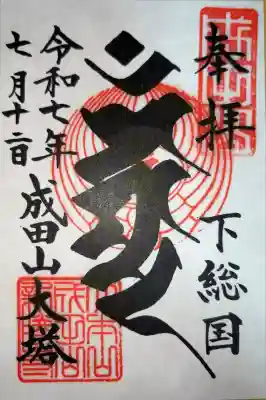 奉拝
下総国
成田山大塔
令和七年
七月十二日